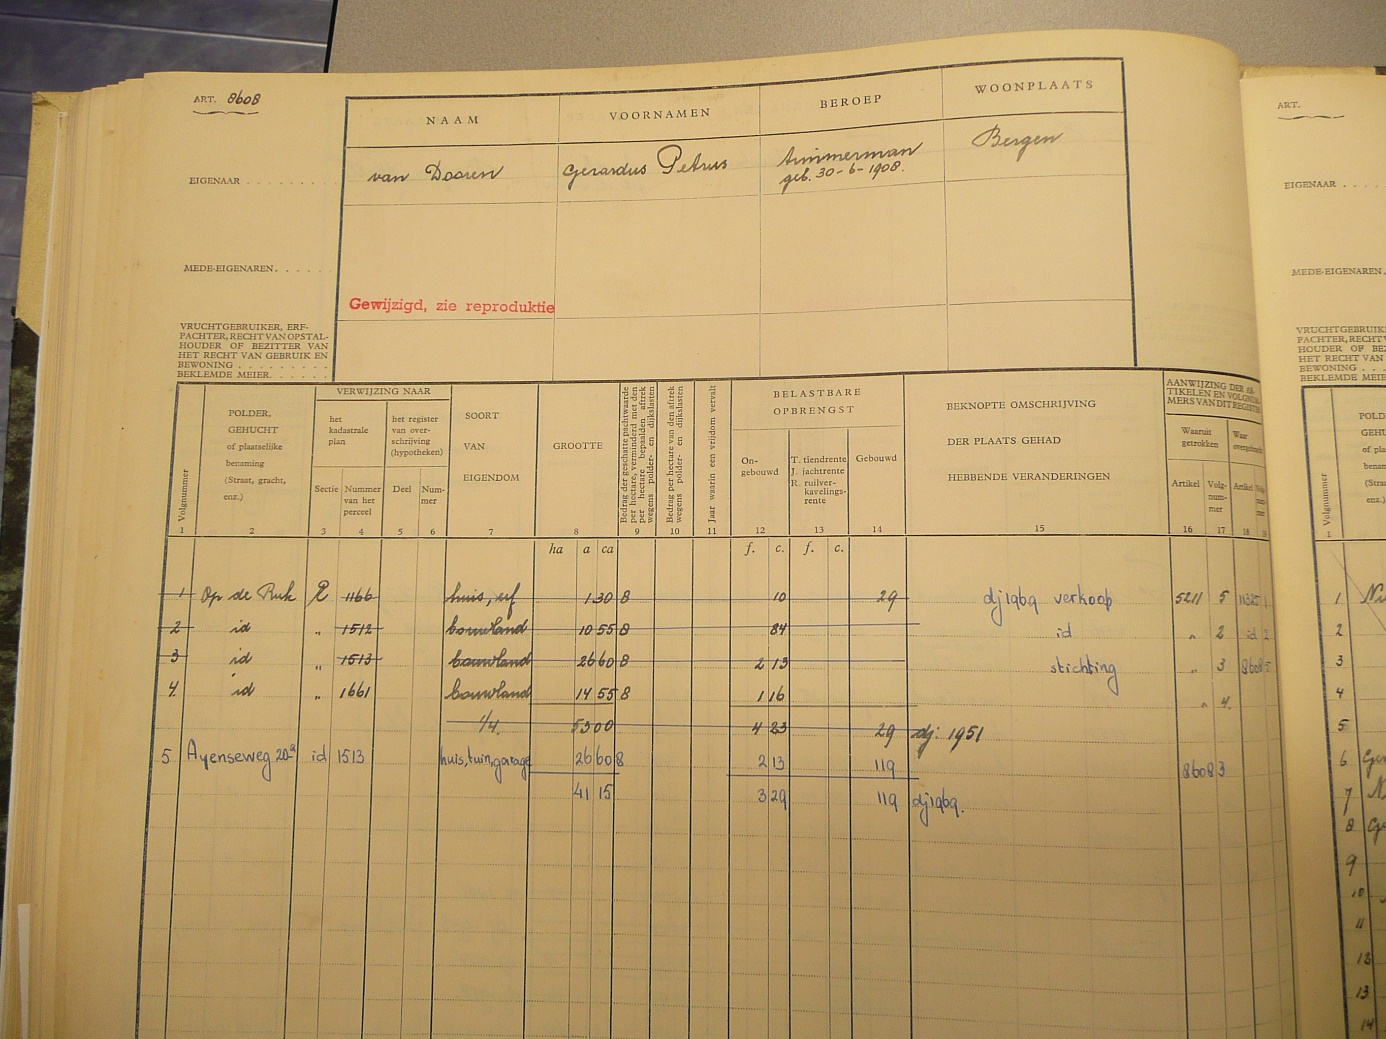 ART. 8608
NAAM VOORNAMEN BEROEP WOONPLAATS
EIGENAAR . . . . . . . . van Dooren Gerardus Petrus timmerman Bergen
geb. 30-6-1908.
MEDE-EIGENAREN. . . . . .
Gewijzigd, zie reproduktie
VRUCHTGEBRUIKER, ERF-
PACHTER, RECHT VAN OPSTAL-
HOUDER OF BEZITTER VAN
HET RECHT VAN GEBRUIK EN
BEWONING . . . . . . . . .
BEKLEMDE MEIER. . . . . .
Volgnummer
POLDER,
GEHUCHT
of plaatselijke
benaming
(Straat, gracht,
enz.)
VERWIJZING NAAR
het
kadastrale
plan
het register
van over-
schrijving
(hypotheken)
Sectie
Nummer
van het
perceel
Deel
Num-
mer
SOORT
VAN
EIGENDOM
GROOTTE
Bedrag der geschatte pachtwaarde
per hectare, verminderd met den
per hectare bepaalden aftrek
wegens polder- en dijkslasten
Bedrag per hectare van den aftrek
wegens polder- en dijkslasten
Jaar waarin een vrijdom vervalt
BELASTBARE
OPBRENGST
On-
gebouwd
T. tiendrente
J. jachtrente
R. ruilver-
kavelings-
rente
Gebouwd
BEKNOPTE OMSCHRIJVING
DER PLAATS GEHAD
HEBBENDE VERANDERINGEN
AANWIJZING DER AR-
TIKELEN EN VOLGNUM-
MERS VAN DIT REGISTER
Waaruit
getrokken
Artikel
Volg-
num-
mer
Artikel
1 2 3 4 5 6 7 8 9 10 11 12 13 14 15 16 17 18
ha a ca f. c. f. c.
1 Op de Ruk E 1166 huis, erf 1 30 8 10 29 dj 1969 verkoop 5211 5
2 id " 1512 bouwland 10 55 8 84 id " 2 id 2
3 id " 1513 bouwland 26 60 8 2 13 stichting " 3 8608 5
4. id " 1661 bouwland 14 55 8 1 16 " 4.
1/4. 53 00 4 23 29 dj: 1951
5 Ayenseweg 20a id 1513 huis, tuin, garage 26 60 8 2 13 119 8608 3
41 15 3 29 119 dj 1969.
ART.
EIGENAAR . . . .
MEDE-EIGENAREN.
VRUCHTGEBRUIK
PACHTER, RECHT
HOUDER OF BE
HET RECHT VA
BEWONING . . .
BEKLEMDE MEIE
Volgnummer
POLD
GEHU
of pla
bena
(Straa
enz.)
1
1
2
3
4
5
6
7
8
9
10
11
12
13
14